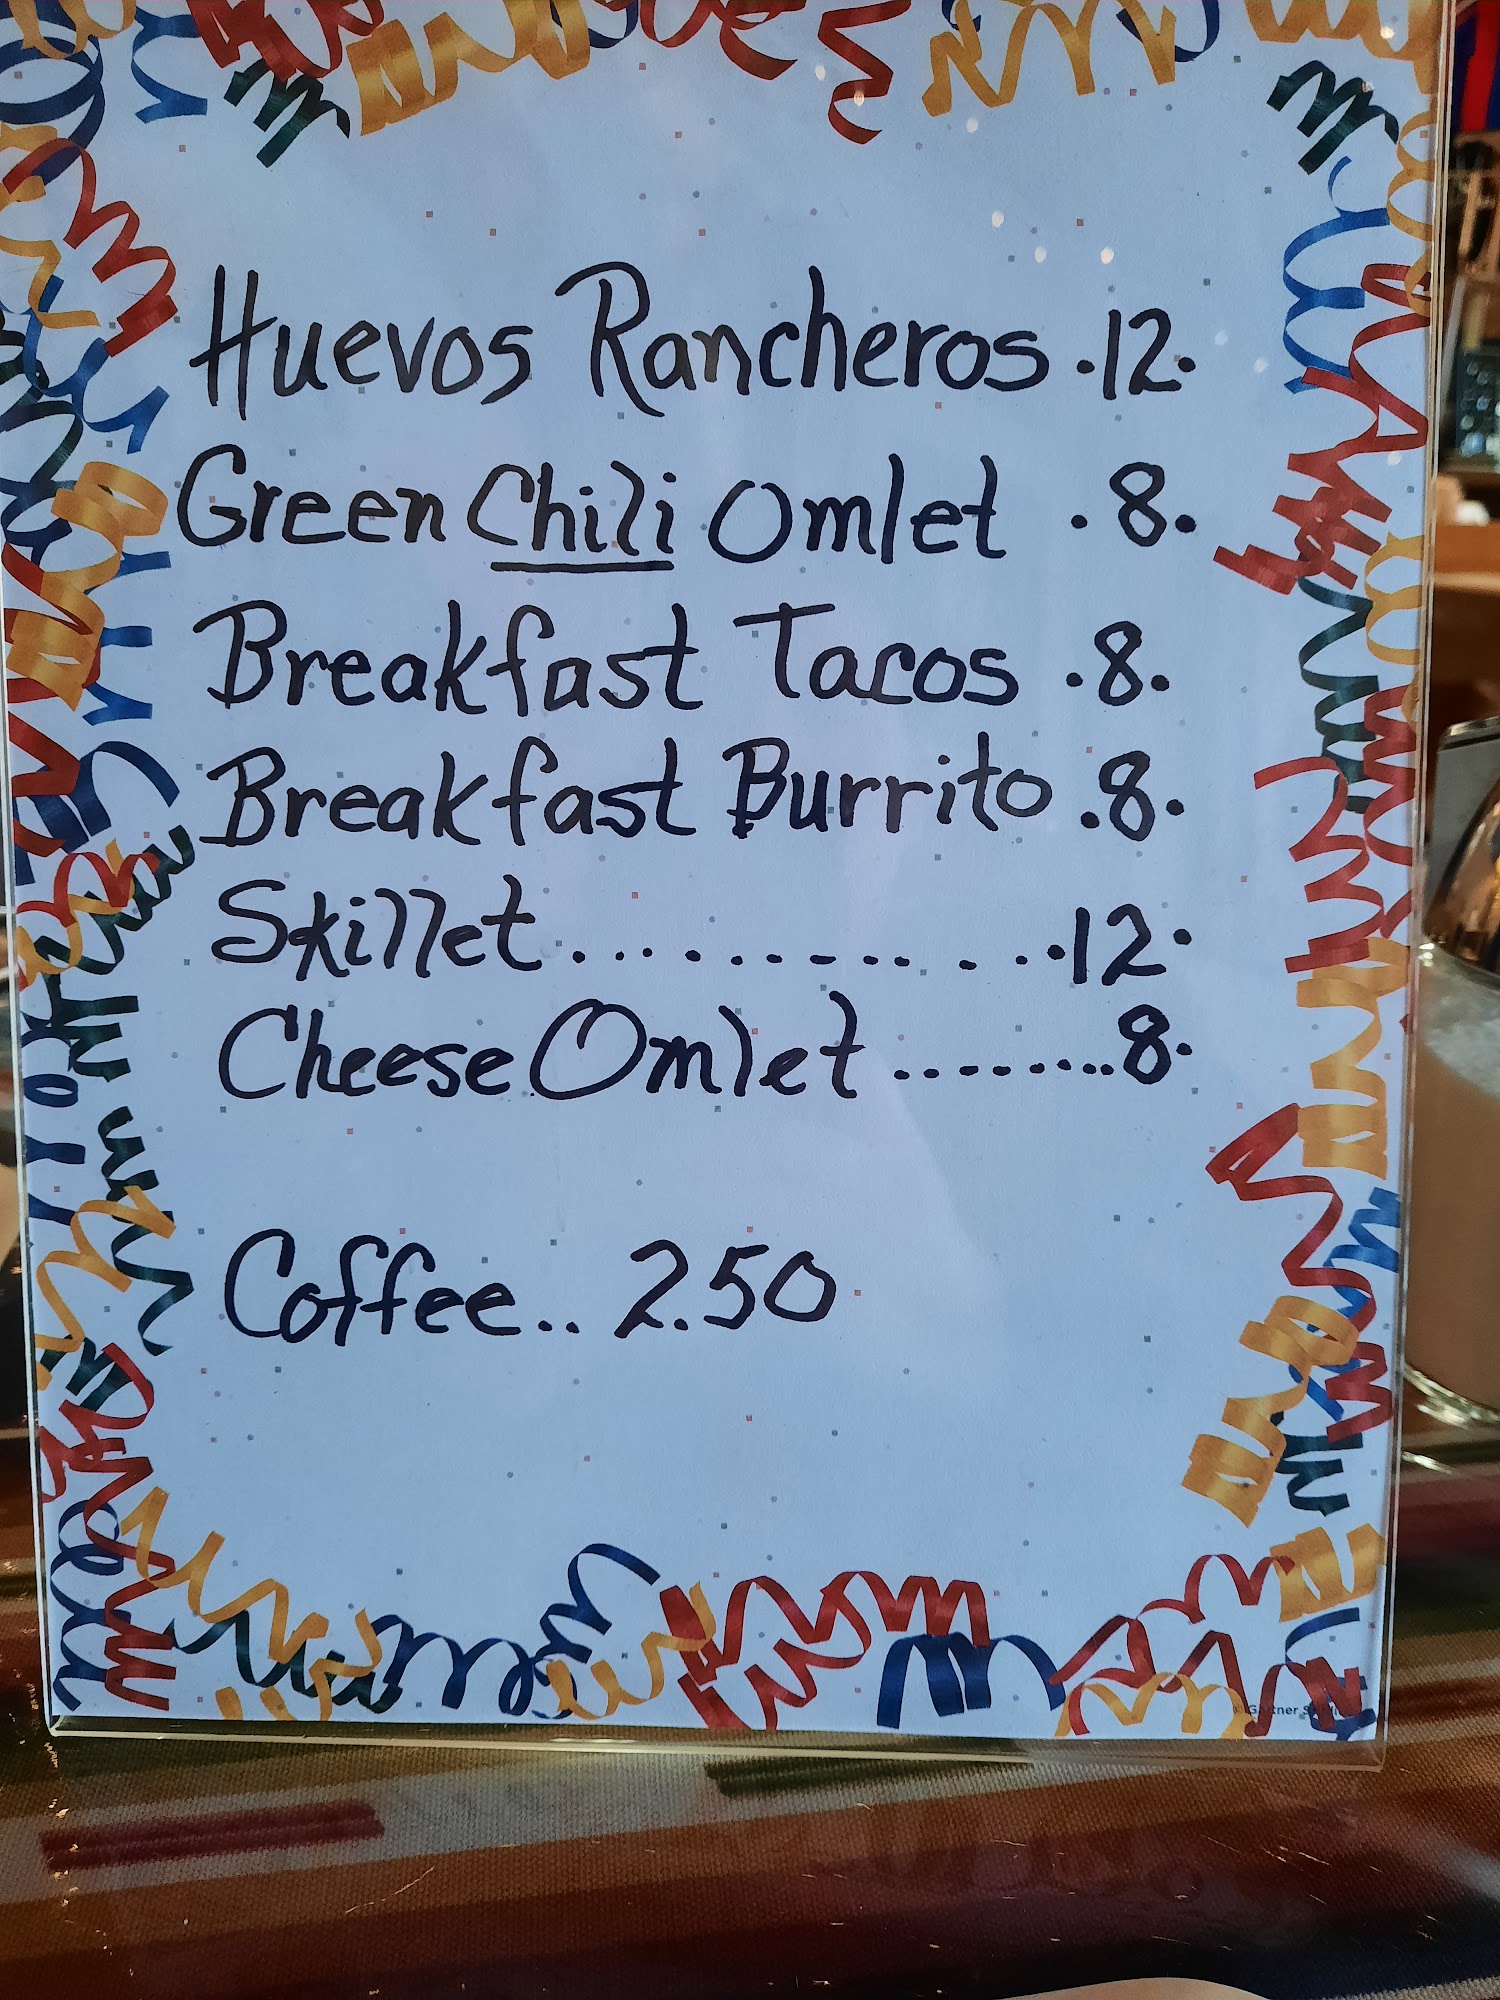 Huevos Rancheros .12.
Green Chili Omlet .8.
Breakfast Tacos .8.
Breakfast Burrito .8.
Skillet................12.
Cheese Omlet.........8.
Coffee.. 2.50